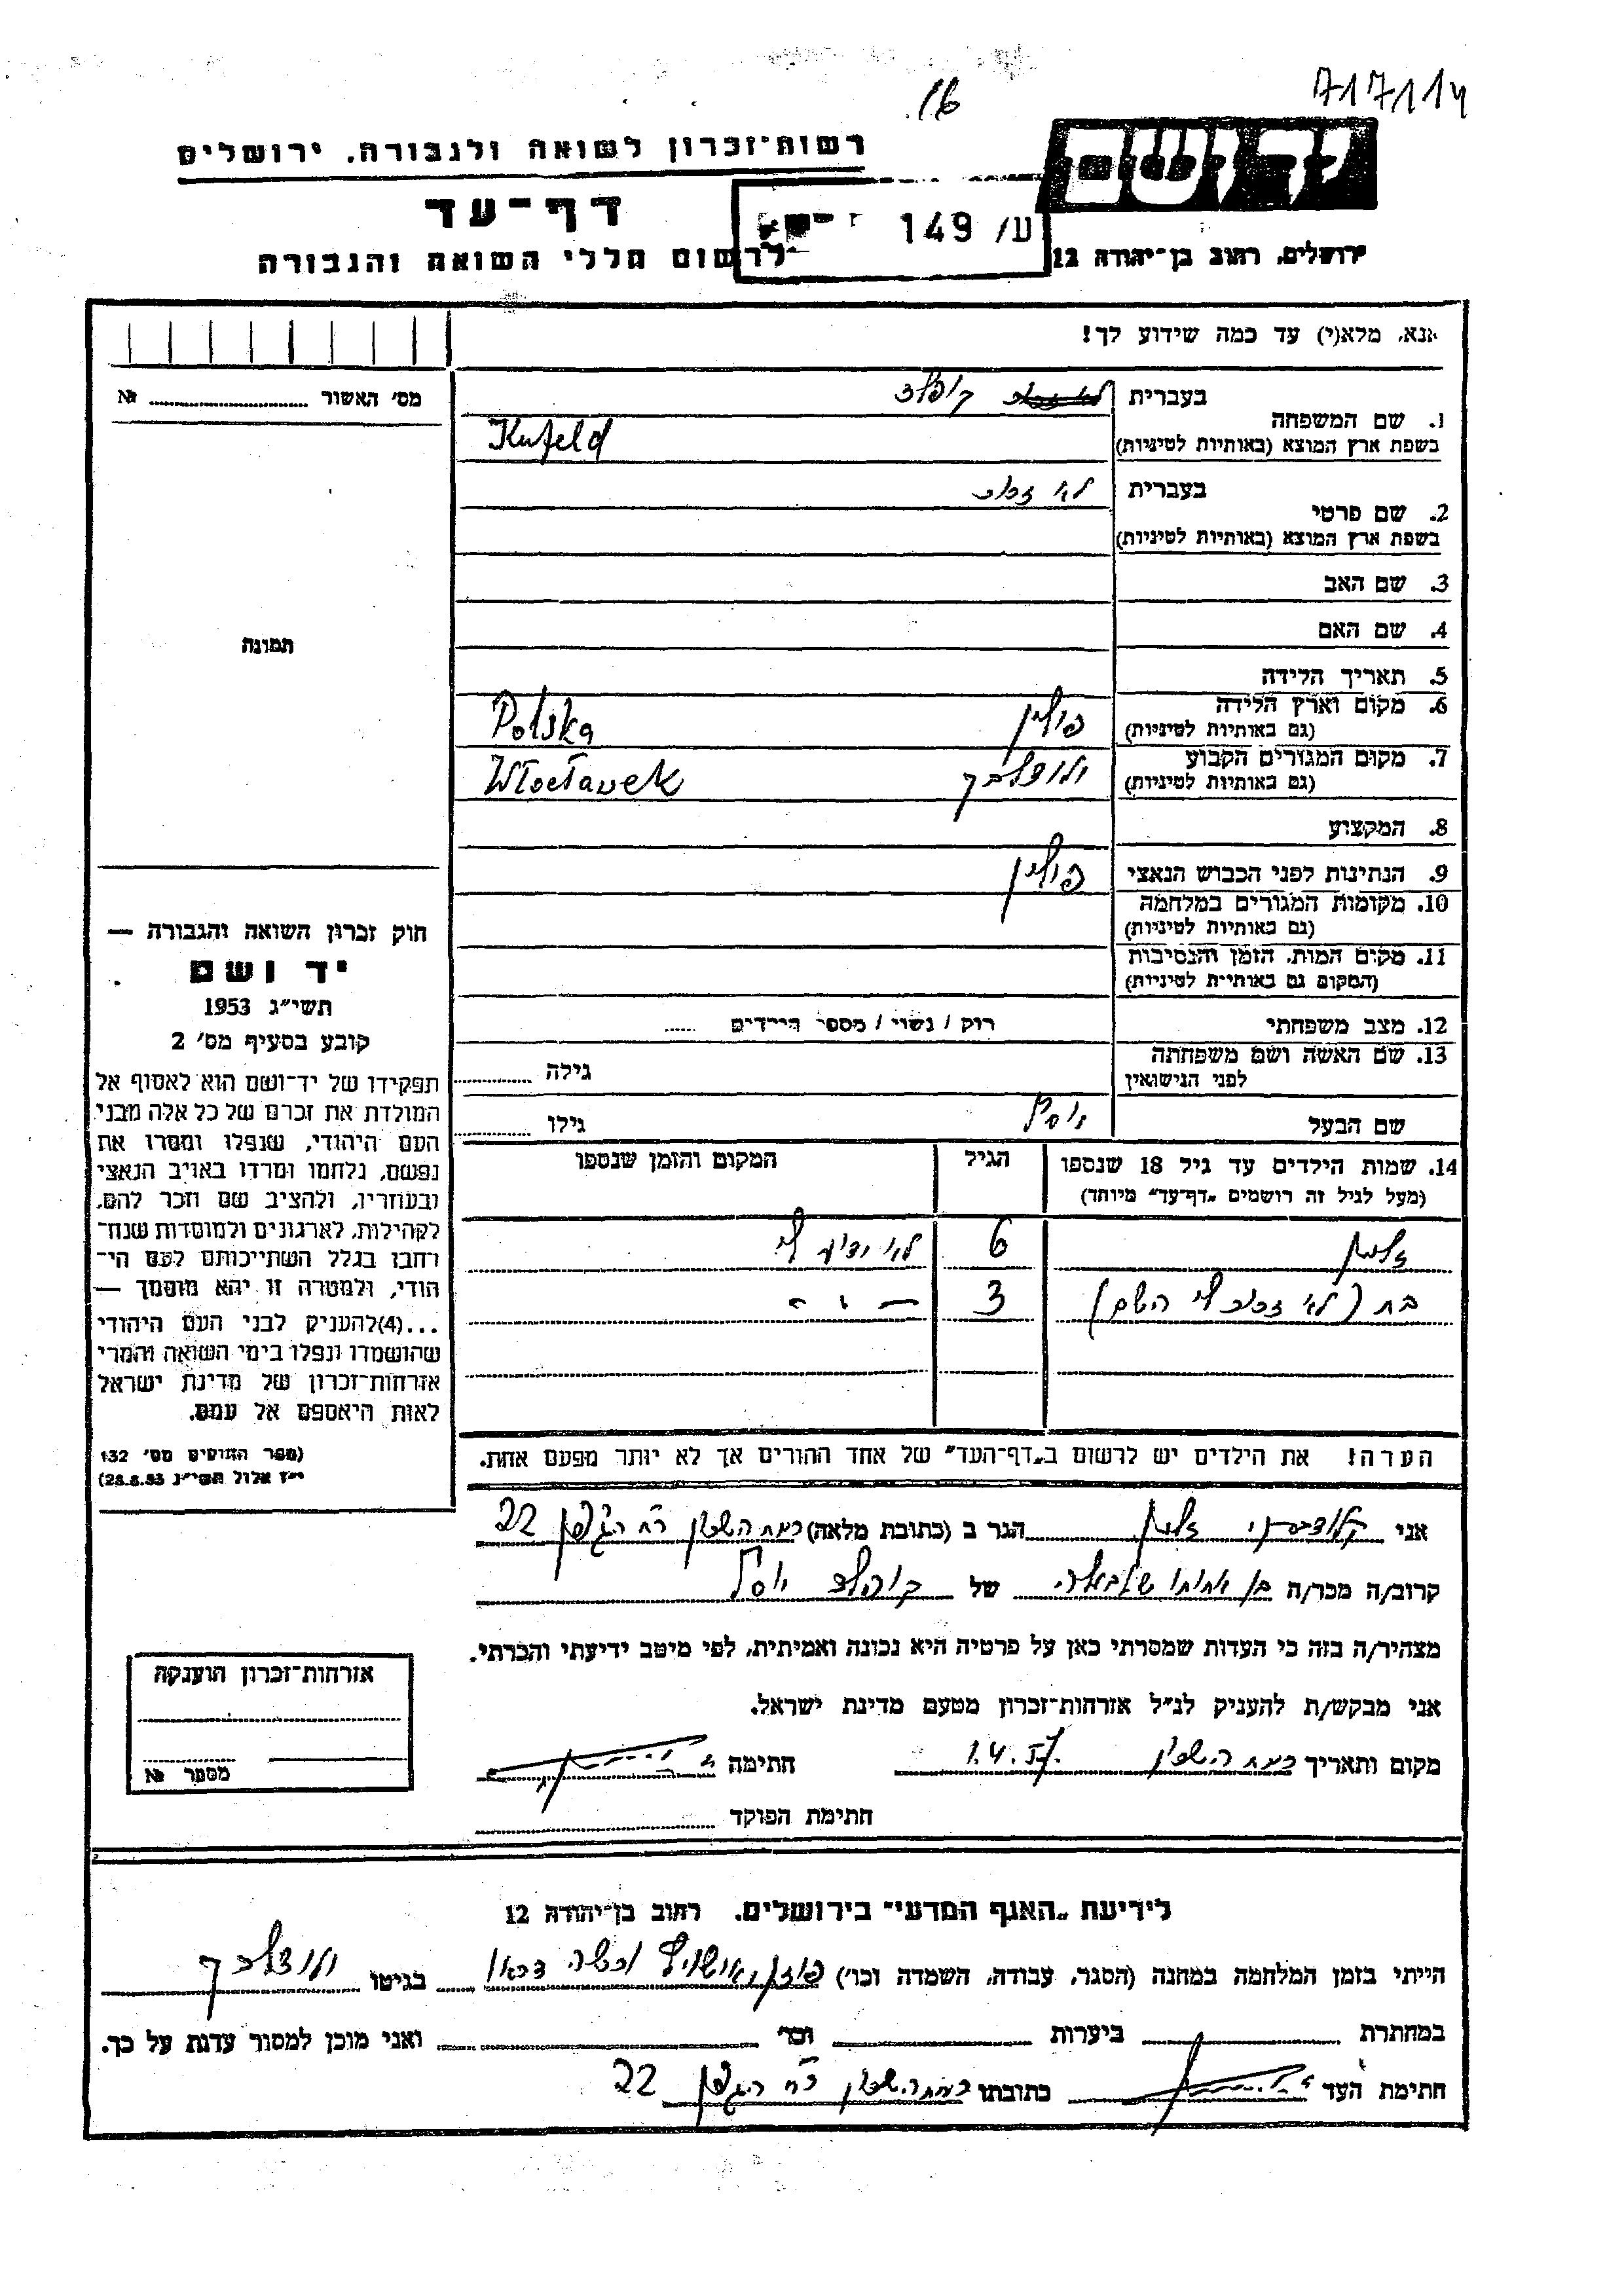 717114
16
יד ושם
רשות־זכרון לשואה ולגבורה, ירושלים
דף־עד
ע/ 149
לרשום חללי השואה והגבורה
ירושלים, רחוב בן־יהודה 12
אנא, מלא(י) עד כמה שידוע לך!
מס' האשור № 
1. שם המשפחה
בעברית קופלד
בשפת ארץ המוצא (באותיות לטיניות) Kufeld
2. שם פרטי
בעברית לא זכור
בשפת ארץ המוצא (באותיות לטיניות)
3. שם האב
4. שם האם
תמונה
5. תאריך הלידה
6. מקום וארץ הלידה פולין Polska
(גם באותיות לטיניות)
7. מקום המגורים הקבוע ולוצלבק Włocławek
(גם באותיות לטיניות)
8. המקצוע
9. הנתינות לפני הכבוש הנאצי פולין
10. מקומות המגורים במלחמה
(גם באותיות לטיניות)
11. מקום המות, הזמן והנסיבות
(המקום גם באותיות לטיניות)
12. מצב משפחתי רוק / נשוי / מספר הילדים
13. שם האשה ושם משפחתה
לפני הנישואין גילה
שם הבעל יוסף גילו
14. שמות הילדים עד גיל 18 שנספו הגיל המקום והזמן שנספו
(מעל לגיל זה רושמים „דף־עד" מיוחד)
זלמן 6 לא ידוע לי
בת (לא זכור לי השם) 3 - " -
הערה! את הילדים יש לרשום ב„דף־העד" של אחד ההורים אך לא יותר מפעם אחת.
חוק זכרון השואה והגבורה —
יד ושם
תשי"ג 1953
קובע בסעיף מס' 2
תפקידו של יד־ושם הוא לאסוף אל
המולדת את זכרם של כל אלה מבני
העם היהודי, שנפלו ומסרו את
נפשם, נלחמו ומרדו באויב הנאצי
ובעוזריו, ולהציב שם וזכר להם,
לקהילות, לארגונים ולמוסדות שנח־
רחבו בגלל השתייכותם לעם הי־
הודי, ולמטרה זו יהא מוסמך —
...(4)להעניק לבני העם היהודי
שהושמדו ונפלו בימי השואה והמרי
אזרחות־זכרון של מדינת ישראל
לאות היאספם אל עמם.
(ספר החוקים מס' 132
י"ז אלול תשי"ג 28.8.53)
אני זלמן הגר ב (כתובת מלאה) רמת השרון רח הגפן 22
קרוב/ה מכר/ה בן אחותו של קופלד יוסף
מצהיר/ה בזה כי העדות שמסרתי כאן על פרטיה היא נכונה ואמיתית, לפי מיטב ידיעתי והכרתי.
אני מבקש/ת להעניק לנ"ל אזרחות־זכרון מטעם מדינת ישראל.
מקום ותאריך רמת השרון 1.4.57. חתימה
חתימת הפוקד
אזרחות־זכרון הוענקה
מספר №
לידיעת „האגף המדעי" בירושלים, רחוב בן־יהודה 12
הייתי בזמן המלחמה במחנה (הסגר, עבודה, השמדה וכו') פוזן, אושויץ בגיטו ולוצלבק
במחתרת ביערות וכו' ואני מוכן למסור עדות על כך.
חתימת העד כתובתו רמת השרון רח הגפן 22